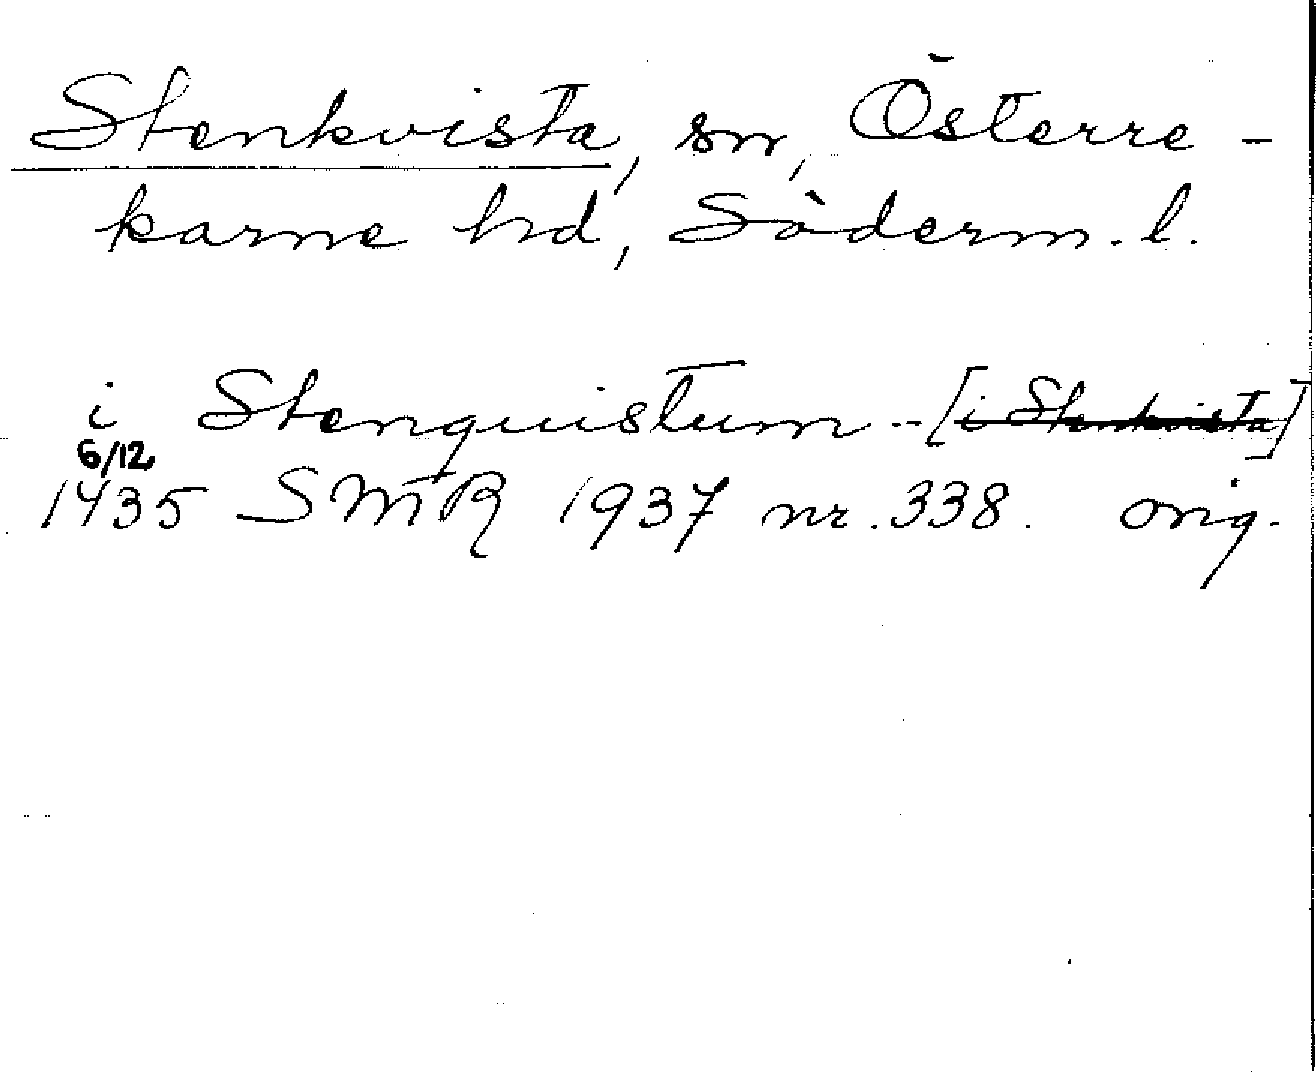 Stenkvista, sn, Österre-
karne hd, Söderm. l.
i Stenquistum -- [i Stenkvista]
6/12
1435 SMR 1937 nr. 338. orig.